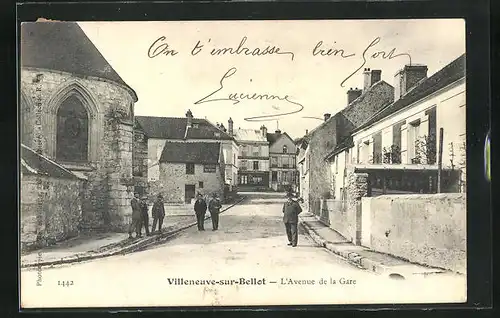 On t'embrasse bien fort
Lucienne
1442 Villeneuve-sur-Bellot — L'Avenue de la Gare